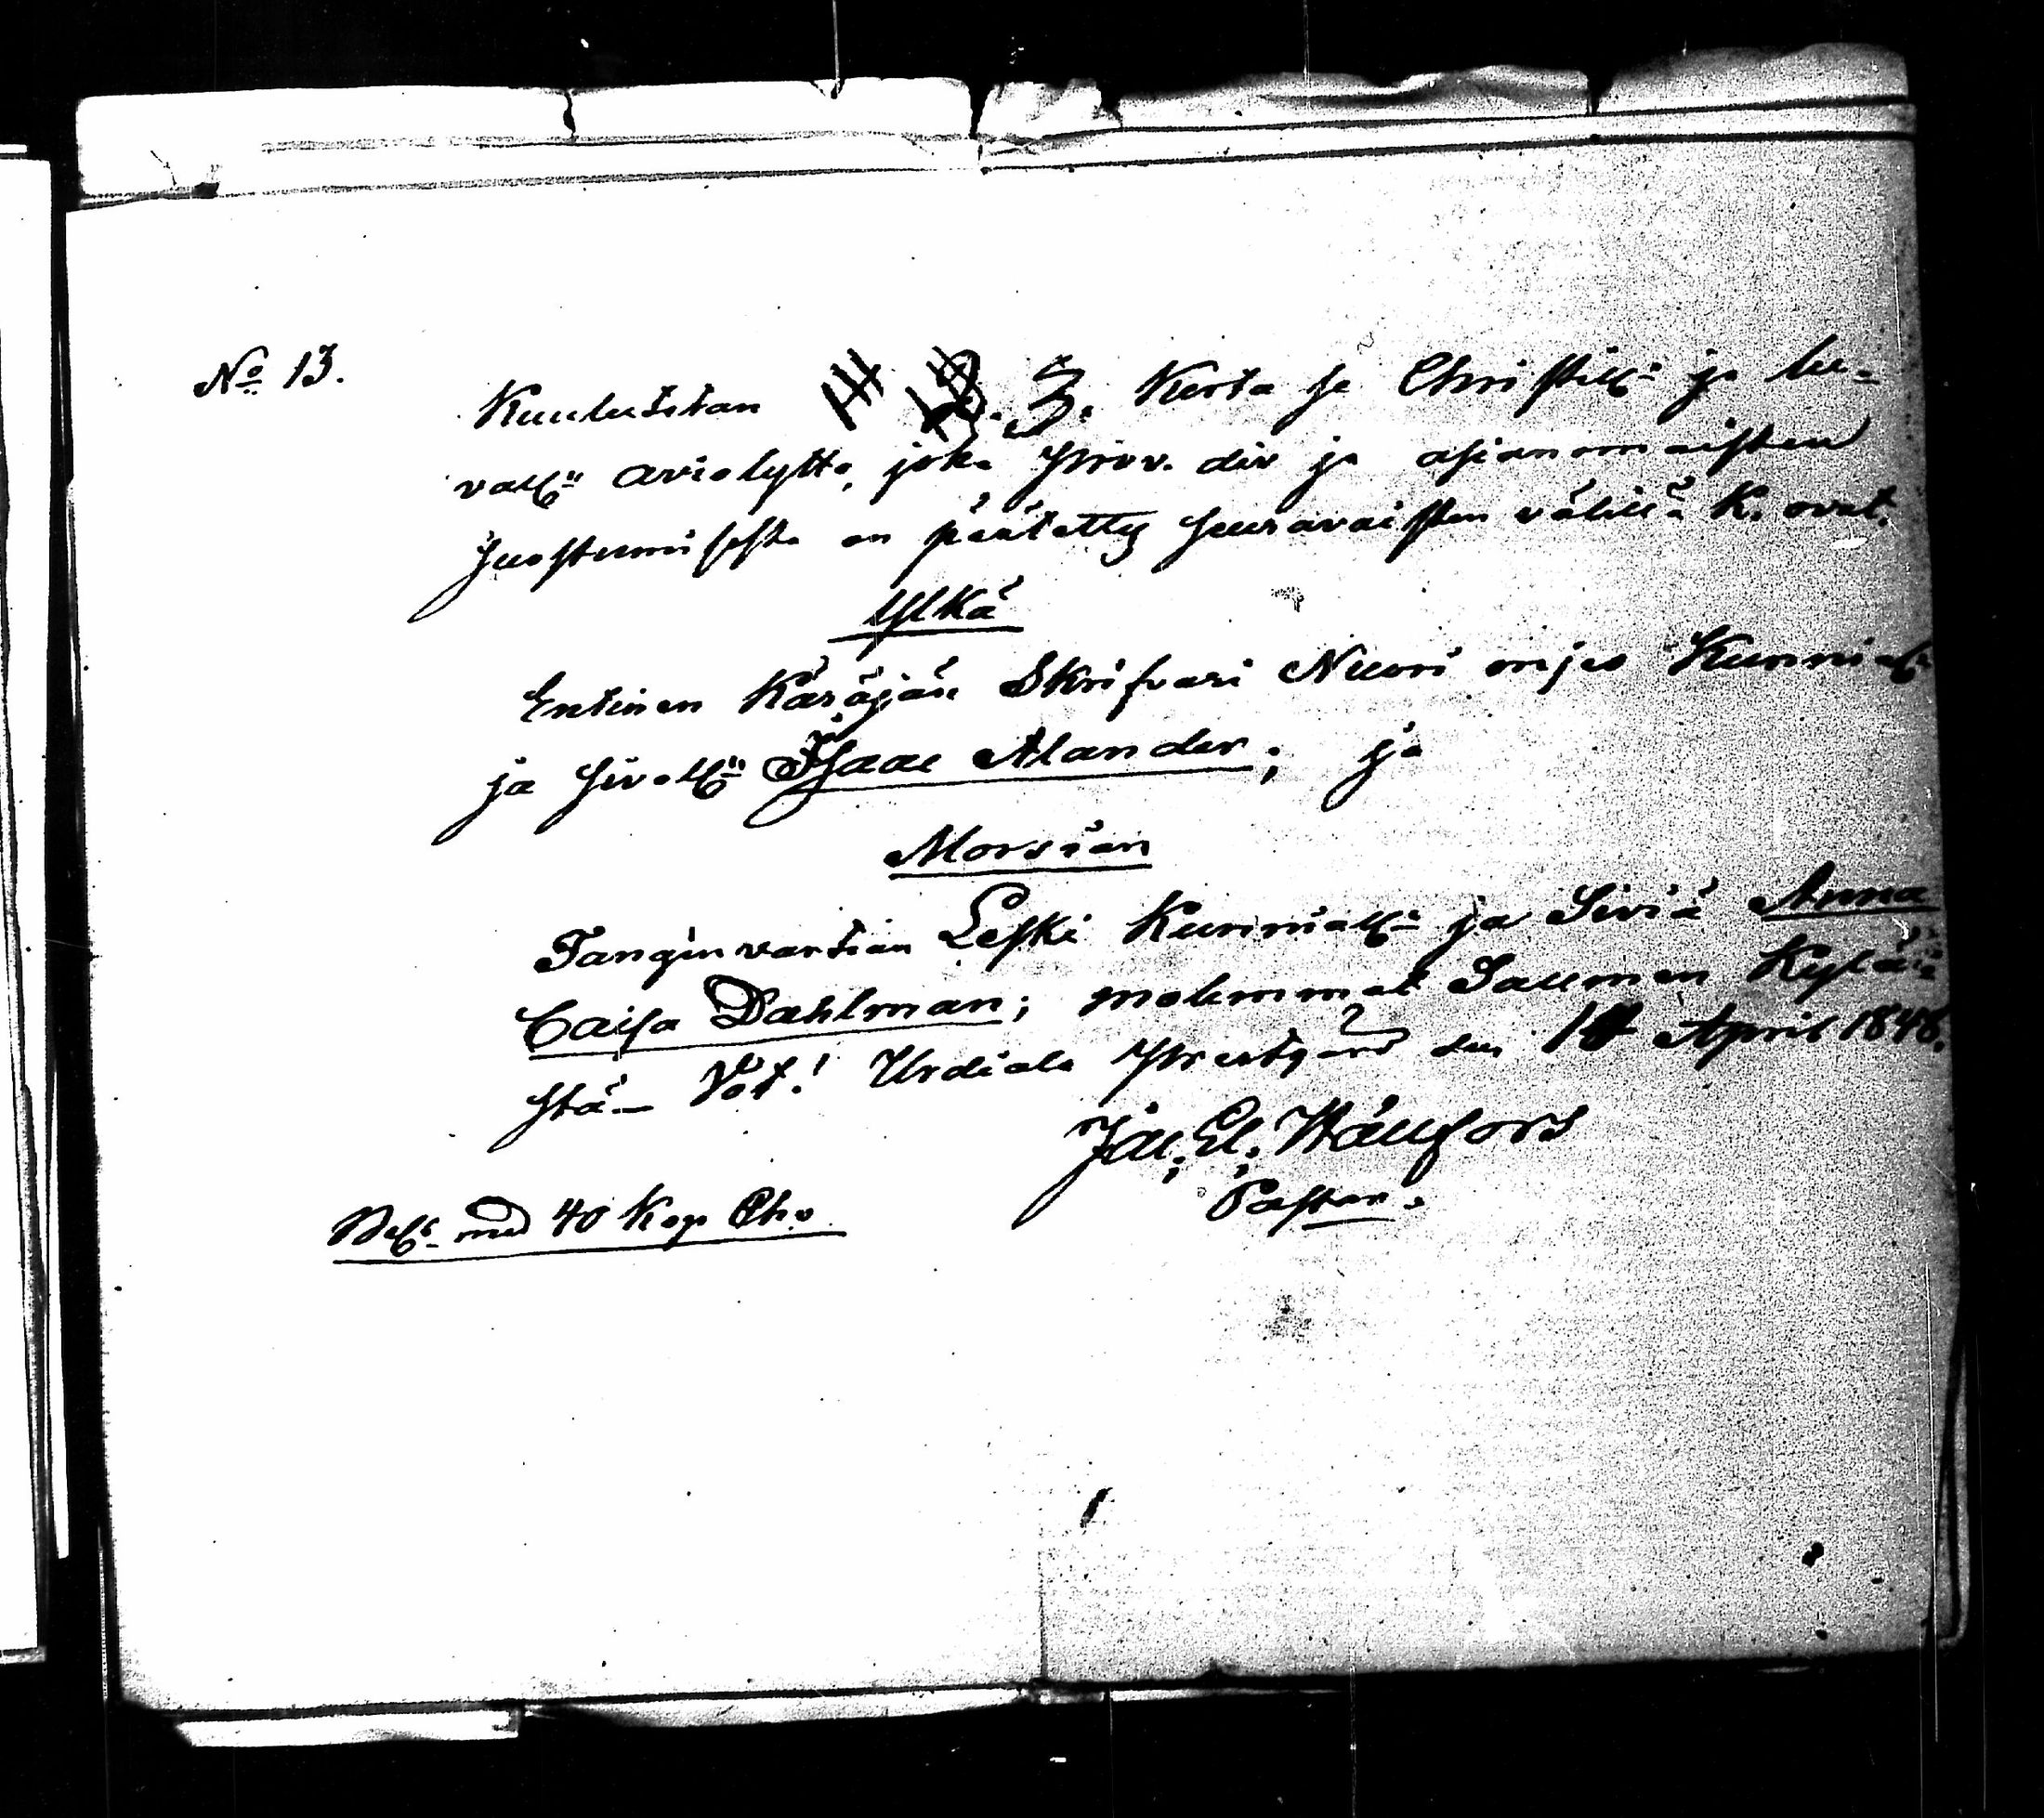 No 13.
Kuulutetan 3. Kerta se Christill: ja lu-
vall: aviolytto, joka Prov. div ja asianomaisten
suostumisesta on päätetty seuravaisten välillä K. ovat.
Ylkä
Entinen Käräjän Skrifvari Nuori mies Kunnial:
ja sivall: Isaac Alander; ja
Morsian
Fanginvartian Leski Kunniall: ja Siviä Anna
Caisa Dahlman; molemmat Salmen Kylä-
stä - Vot! Urdiala Prestgård den 1 April 1848.
Jac. El. Wällfors
Pastor.
med 40 Kop